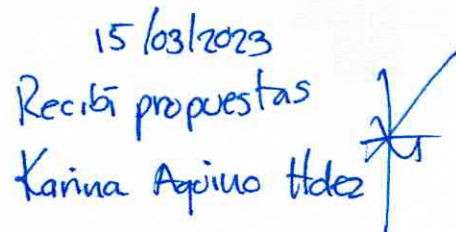 15/03/2023
Recibí propuestas
Karina Aquino Hdez